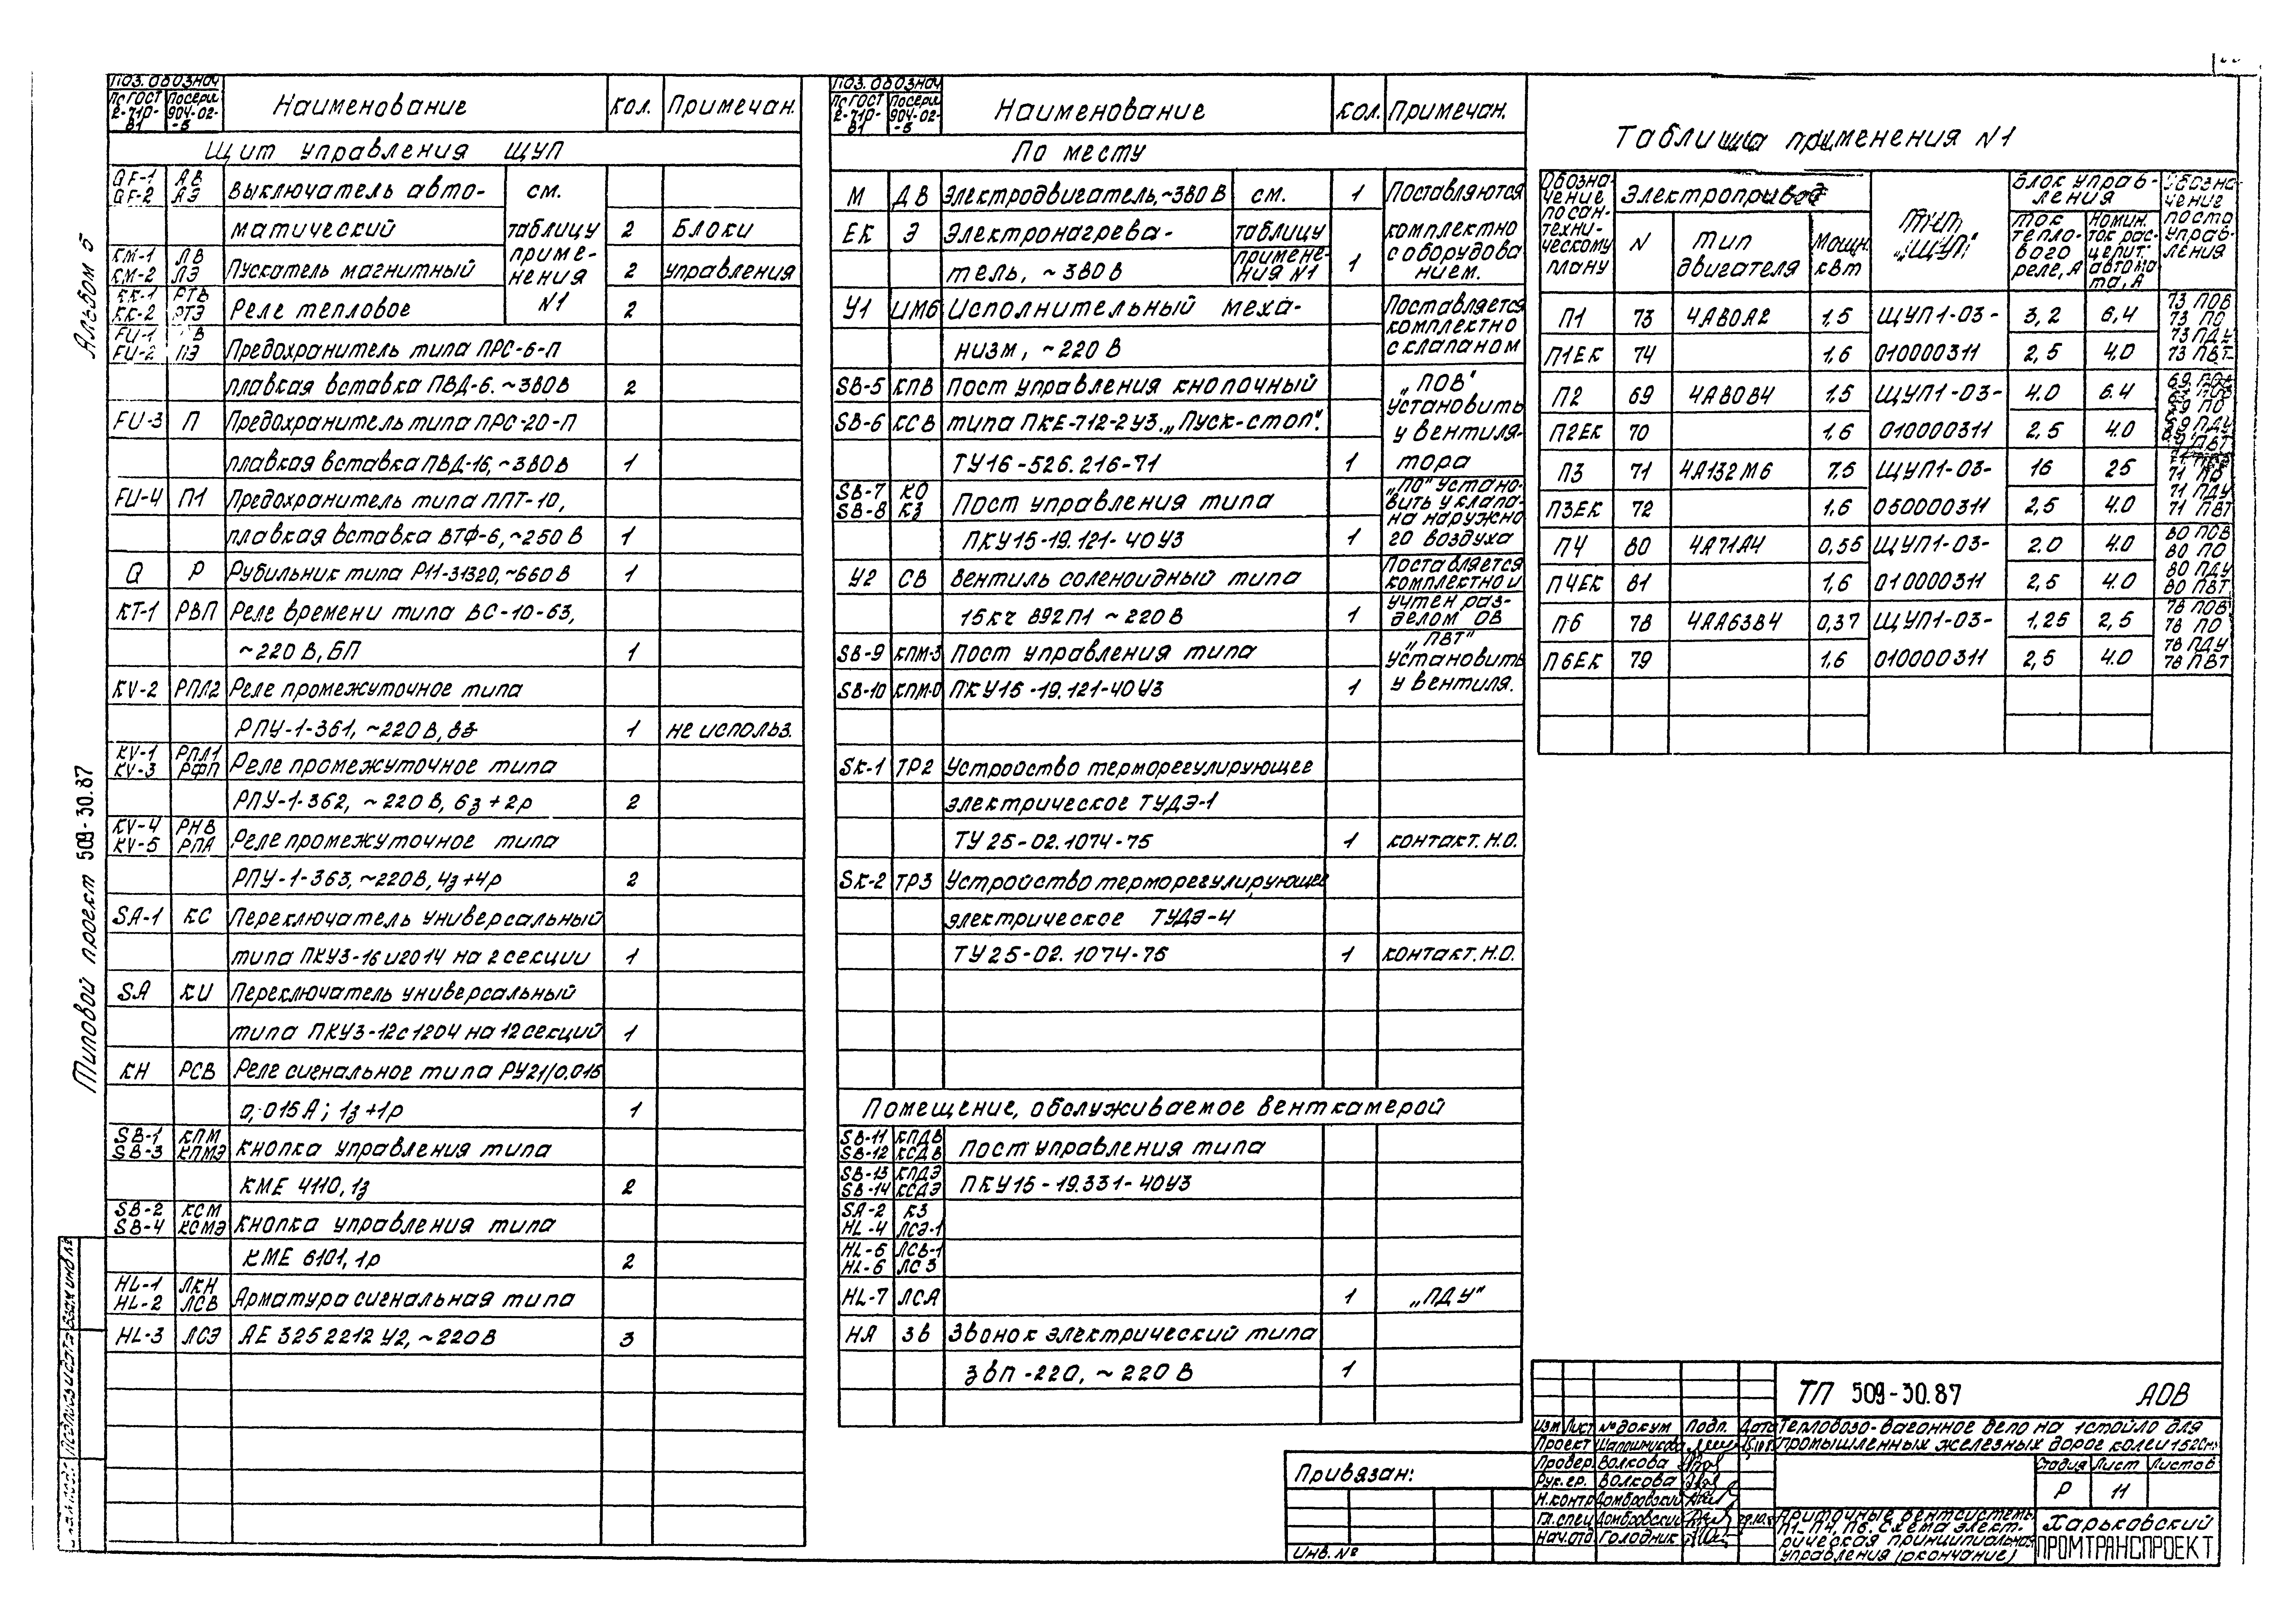 Альбом 5
Типовой проект 509-30.87
Поз. обознач
По ГОСТ 2-710-81 | По серии 904-02-5 | Наименование | Кол. | Примечан.
Щит управления ЩУП
QF-1 | АВ
QF-2 | АЭ | Выключатель авто- | см.
матический | таблицу | 2 | Блоки
КМ-1 | ЛВ | приме-
КМ-2 | ЛЭ | Пускатель магнитный | нения | 2 | управления
КК-1 | РТВ | N1
КК-2 | РТЭ | Реле тепловое | 2
FU-1
FU-2 | ПЭ | Предохранитель типа ПРС-6-П
плавкая вставка ПВД-6. ~380В | 2
FU-3 | П | Предохранитель типа ПРС-20-П
плавкая вставка ПВД-16, ~380В | 1
FU-4 | П1 | Предохранитель типа ППТ-10,
плавкая вставка ВТФ-6, ~250 В | 1
Q | Р | Рубильник типа Р11-31320, ~660 В | 1
КТ-1 | РВП | Реле времени типа ВС-10-63,
~220 В, БП | 1
KV-2 | РПЛ2 | Реле промежуточное типа
РПУ-1-361, ~220 В, 8з | 1 | не использ.
KV-1 | РПЛ1
KV-3 | РФП | Реле промежуточное типа
РПУ-1-362, ~220 В, 6з+2р | 2
KV-4 | РНВ
KV-5 | РПА | Реле промежуточное типа
РПУ-1-363, ~220В, 4з+4р | 2
SA-1 | КС | Переключатель универсальный
типа ПКУ3-16и2014 на 2 секции | 1
SA | КИ | Переключатель универсальный
типа ПКУ3-12с1204 на 12 секций | 1
КН | РСВ | Реле сигнальное типа РУ21/0,015
0,015А; 1з+1р | 1
SB-1 | КПМ
SB-3 | КПМЭ | Кнопка управления типа
КМЕ 4110, 1з | 2
SB-2 | КСМ
SB-4 | КСМЭ | Кнопка управления типа
КМЕ 6101, 1р | 2
HL-1 | ЛКН
HL-2 | ЛСВ | Арматура сигнальная типа
HL-3 | ЛСЭ | АЕ 3252212 У2, ~220В | 3
Поз. обознач
По ГОСТ 2-710-81 | По серии 904-02-5 | Наименование | Кол. | Примечан.
По месту
М | ДВ | Электродвигатель, ~380 В | см. | 1 | Поставляются
ЕК | Э | Электронагрева- | таблицу | комплектно
тель, ~380 В | примене-ния N1 | 1 | с оборудова
нием.
У1 | ИМ6 | Исполнительный меха- | Поставляется
комплектно
низм, ~220 В | с клапаном
SB-5 | КПВ | Пост управления кнопочный | „ПОВ"
SB-6 | КСВ | типа ПКЕ-712-2У3 „Пуск-стоп". | установить
у вентиля-
ТУ16-526.216-71 | 1 | тора
SB-7 | КО | „ПО" устано-
SB-8 | КЗ | Пост управления типа | вить у клапа-
на наружно
ПКУ15-19.121-40У3 | 1 | го воздуха
У2 | СВ | Вентиль соленоидный типа | Поставляется
комплектно и
15кч 892П1 ~220 В | 1 | учтен раз-
делом ОВ
SB-9 | КПМ-З | Пост управления типа | „ПВТ"
установить
SB-10 | КПМ-О | ПКУ15-19.121-40У3 | 1 | у вентиля.
SK-1 | ТР2 | Устройство терморегулирующее
электрическое ТУДЭ-1
ТУ 25-02.1074-75 | 1 | контакт. Н.О.
SK-2 | ТР3 | Устройство терморегулирующее
электрическое ТУДЭ-4
ТУ 25-02.1074-75 | 1 | контакт. Н.О.
Помещение, обслуживаемое венткамерой
SB-11 | КПДВ
SB-12 | КСДВ | Пост управления типа
SB-13 | КПДЭ
SB-14 | КСДЭ | ПКУ15-19.331-40У3
SA-2 | КЗ
HL-4 | ЛСЭ-1
HL-5 | ЛСВ-1
HL-6 | ЛСЗ
HL-7 | ЛСА | 1 | „ПДУ"
НА | ЗВ | Звонок электрический типа
ЗВП-220, ~220 В | 1
Таблица применения N1
Обозна-чение по сан-техни-ческому плану | Электропривод | Тип „ЩУП" | Блок управ-ления | Обозна-чение поста управ-ления
N | Тип двигателя | Мощн. кВт | Ток тепло-вого реле, А | Номин. ток рас-цепит. автома та, А
П1 | 73 | 4А80А2 | 1,5 | ЩУП1-03- | 3,2 | 6,4 | 73 ПОВ
73 ПО
73 ПДУ
П1ЕК | 74 | 1,6 | 010000311 | 2,5 | 4.0 | 73 ПВТ
П2 | 69 | 4А80В4 | 1,5 | ЩУП1-03- | 4.0 | 6.4 | 69 ПОВ
69 ПО
69 ПДУ
П2ЕК | 70 | 1,6 | 010000311 | 2,5 | 4.0 | 69 ПВТ
П3 | 71 | 4А132М6 | 7,5 | ЩУП1-03- | 16 | 25
71 ПО
71 ПДУ
П3ЕК | 72 | 1,6 | 050000311 | 2,5 | 4.0 | 71 ПВТ
П4 | 80 | 4А71А4 | 0,55 | ЩУП1-03- | 2.0 | 4.0 | 80 ПОВ
80 ПО
80 ПДУ
П4ЕК | 81 | 1,6 | 010000311 | 2,5 | 4.0 | 80 ПВТ
П6 | 78 | 4АА63В4 | 0,37 | ЩУП1-03- | 1,25 | 2,5 | 78 ПОВ
78 ПО
78 ПДУ
П6ЕК | 79 | 1,6 | 010000311 | 2,5 | 4.0 | 78 ПВТ
Привязан:
Инв. №
ТП 509-30.87 АОВ
Изм Лист № докум Подп. Дата
Проект Шапошникова
Провер. Волкова
Рук.гр. Волкова
Н.контр Домбровский
Гл.спец Домбровский
Нач.отд Голодник
Тепловозо-вагонное депо на 1 стойло для
промышленных железных дорог колеи 1520мм
Стадия Лист Листов
Р 11
Приточные вентсистемы
П1-П4, П6. Схема элект-
рическая принципиальная
управления (окончание)
Харьковский
ПРОМТРАНСПРОЕКТ